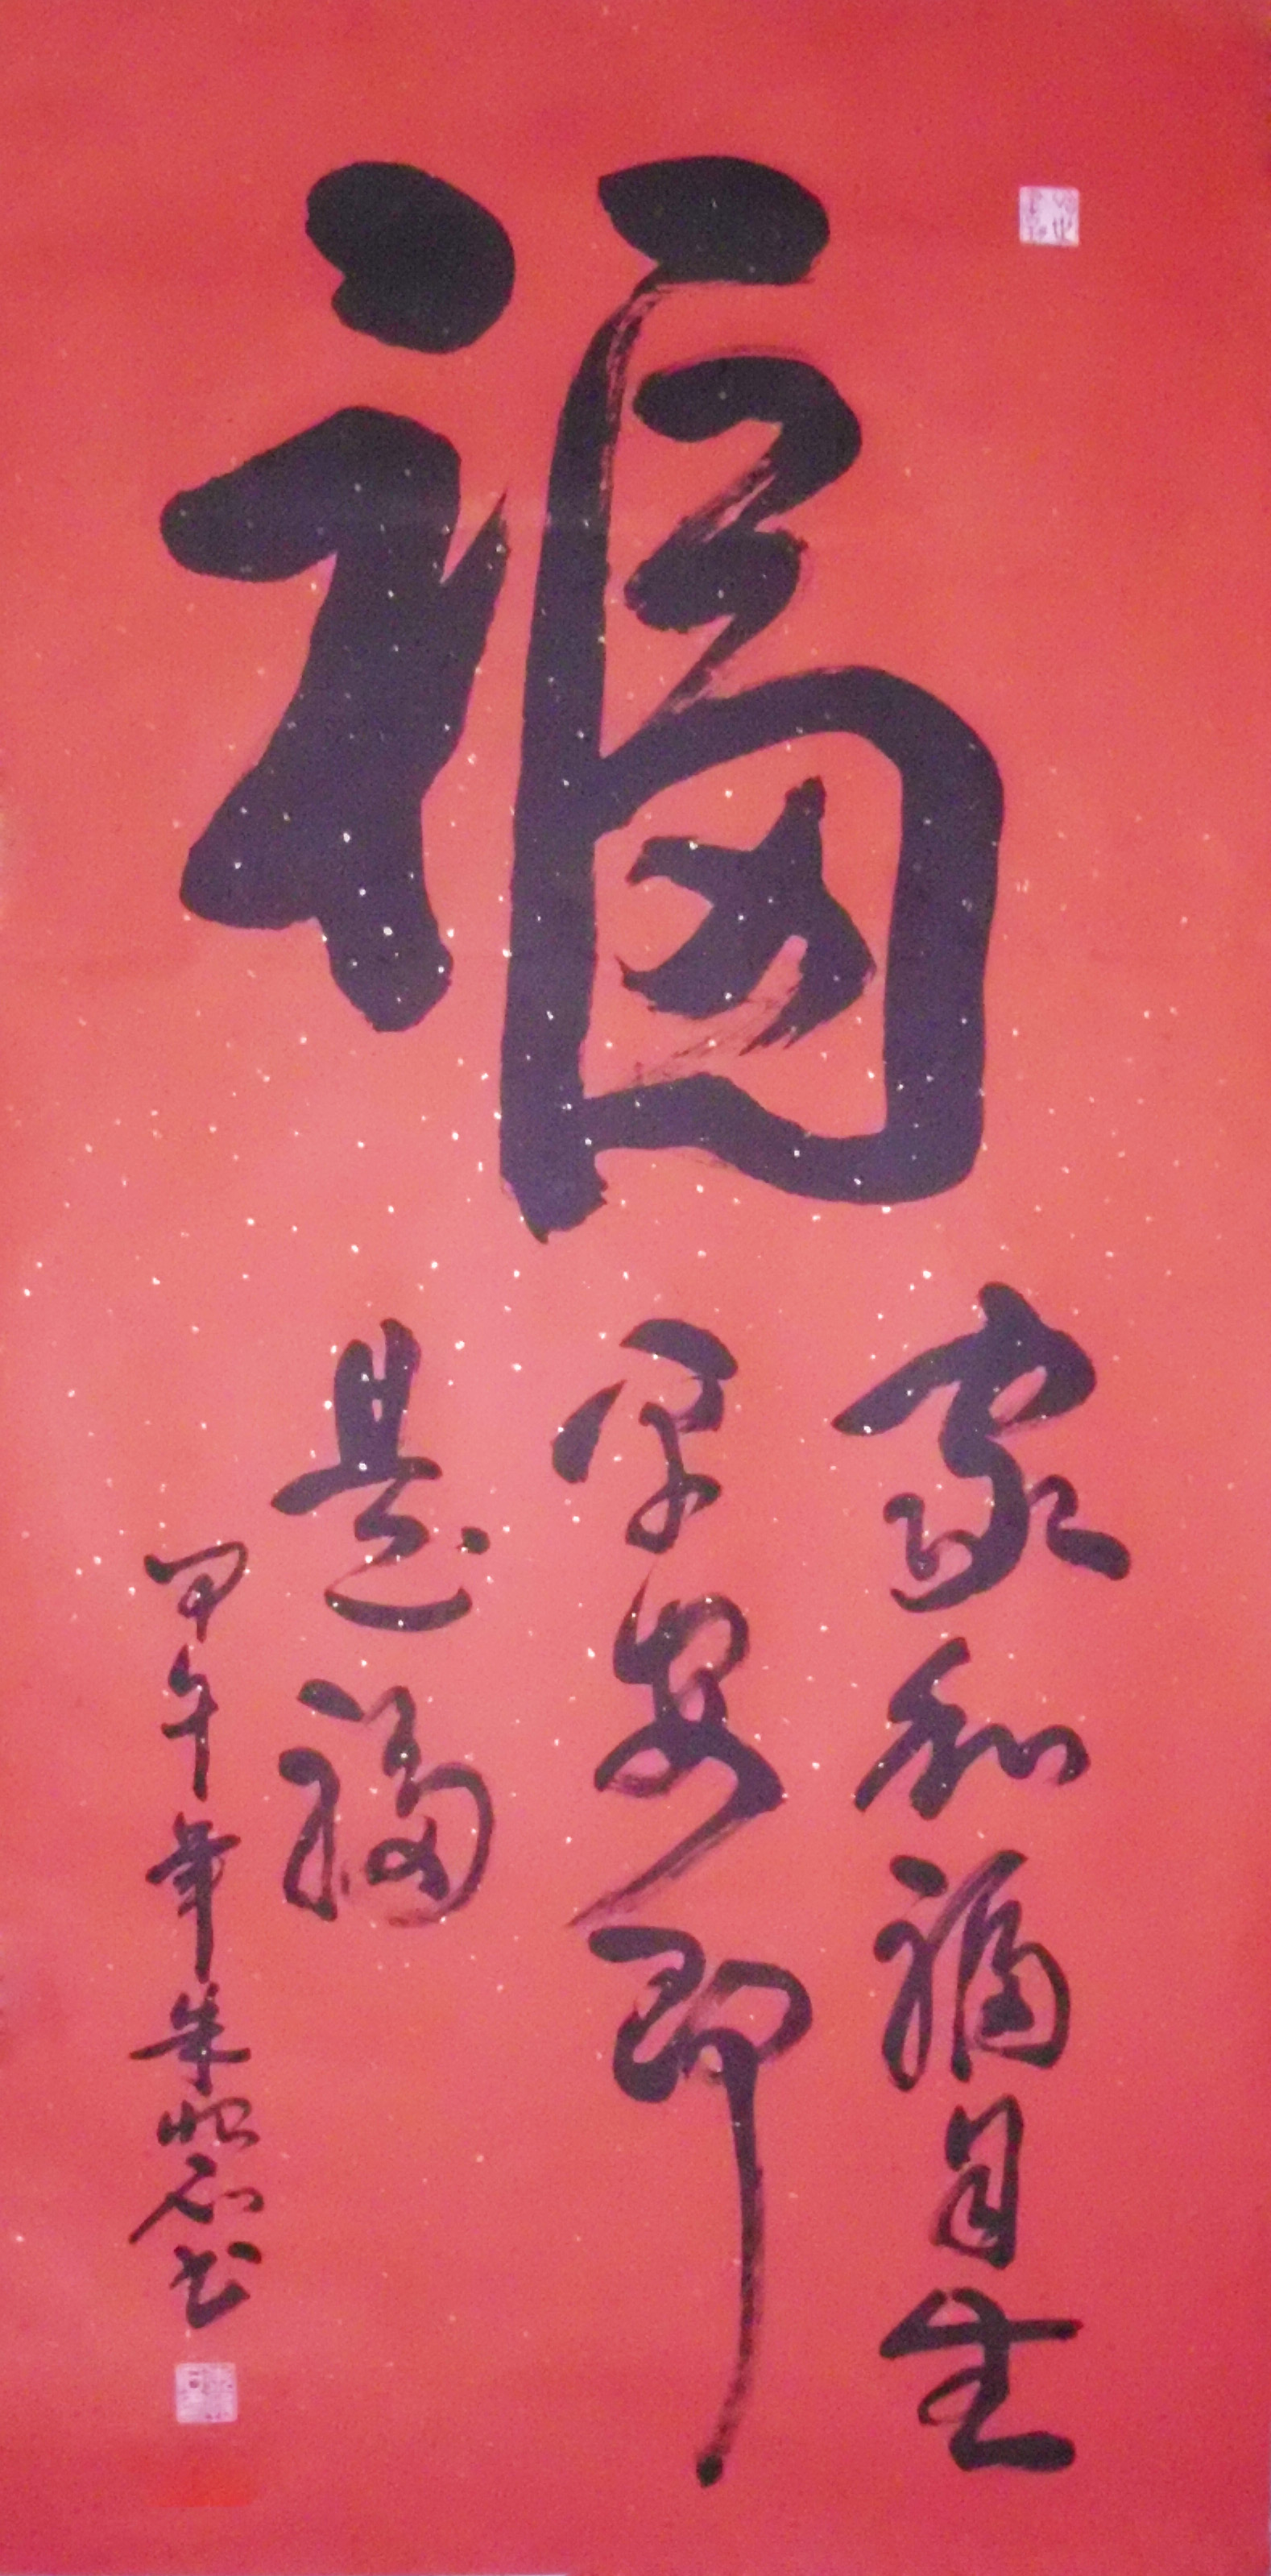 福
家和福自生
平安即
是福
甲午年朱松石书